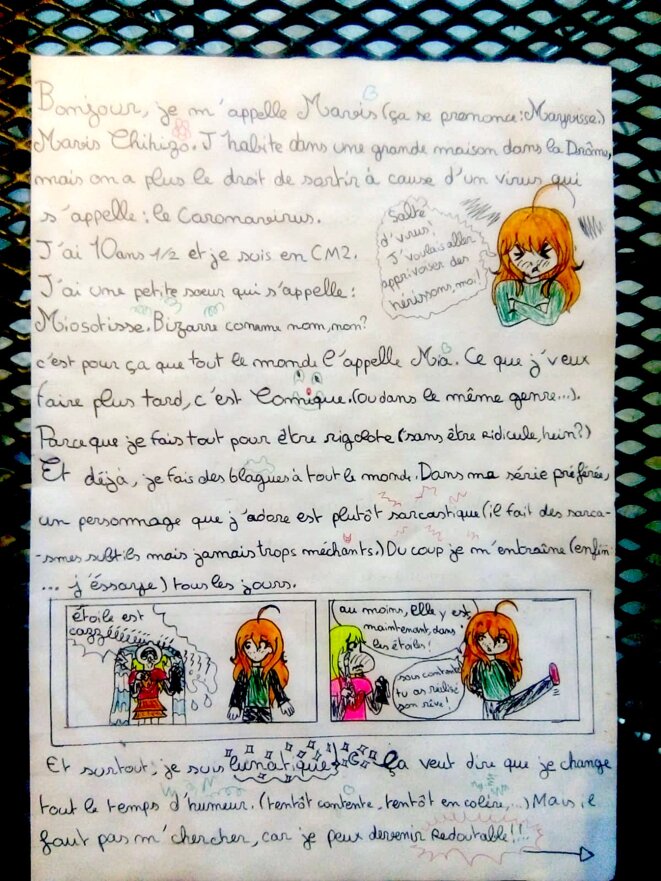 Bonjour, je m'appelle Maris (ça se prononce : Maryisse.)
Maris Chihizo. J'habite dans une grande maison dans la Drôme,
mais on a plus le droit de sortir à cause d'un virus qui
s'appelle : le Caronavirus.
Saleté
d'virus!
J'voulais aller
apprivoiser des
hérissons, moi!
J'ai 10 ans 1/2 et je suis en CM2.
J'ai une petite sœur qui s'appelle :
Miosotisse. Bizarre comme nom, non?
c'est pour ça que tout le monde l'appelle Mia. Ce que j'veux
faire plus tard, c'est Comique. (ou dans le même genre...).
Parce que je fais tout pour être rigolote (sans être ridicule, hein?)
Et déjà, je fais des blagues à tout le monde. Dans ma série préférée,
un personnage que j'adore est plutôt sarcastique (il fait des sarca-
-smes subtils mais jamais trops méchants.) Du coup je m'entraîne (enfin
... j'éssaye) tous les jours.
étoile est
au moins, elle y est
maintenant, dans
les étoiles!
sois contente
tu as réalisé
son rêve!
Et surtout, je suis lunatique! Ça veut dire que je change
tout le temps d'humeur. (tentôt contente, tentôt en colère,...) Mais il
faut pas m'chercher, car je peux devenir Redoutable!!..